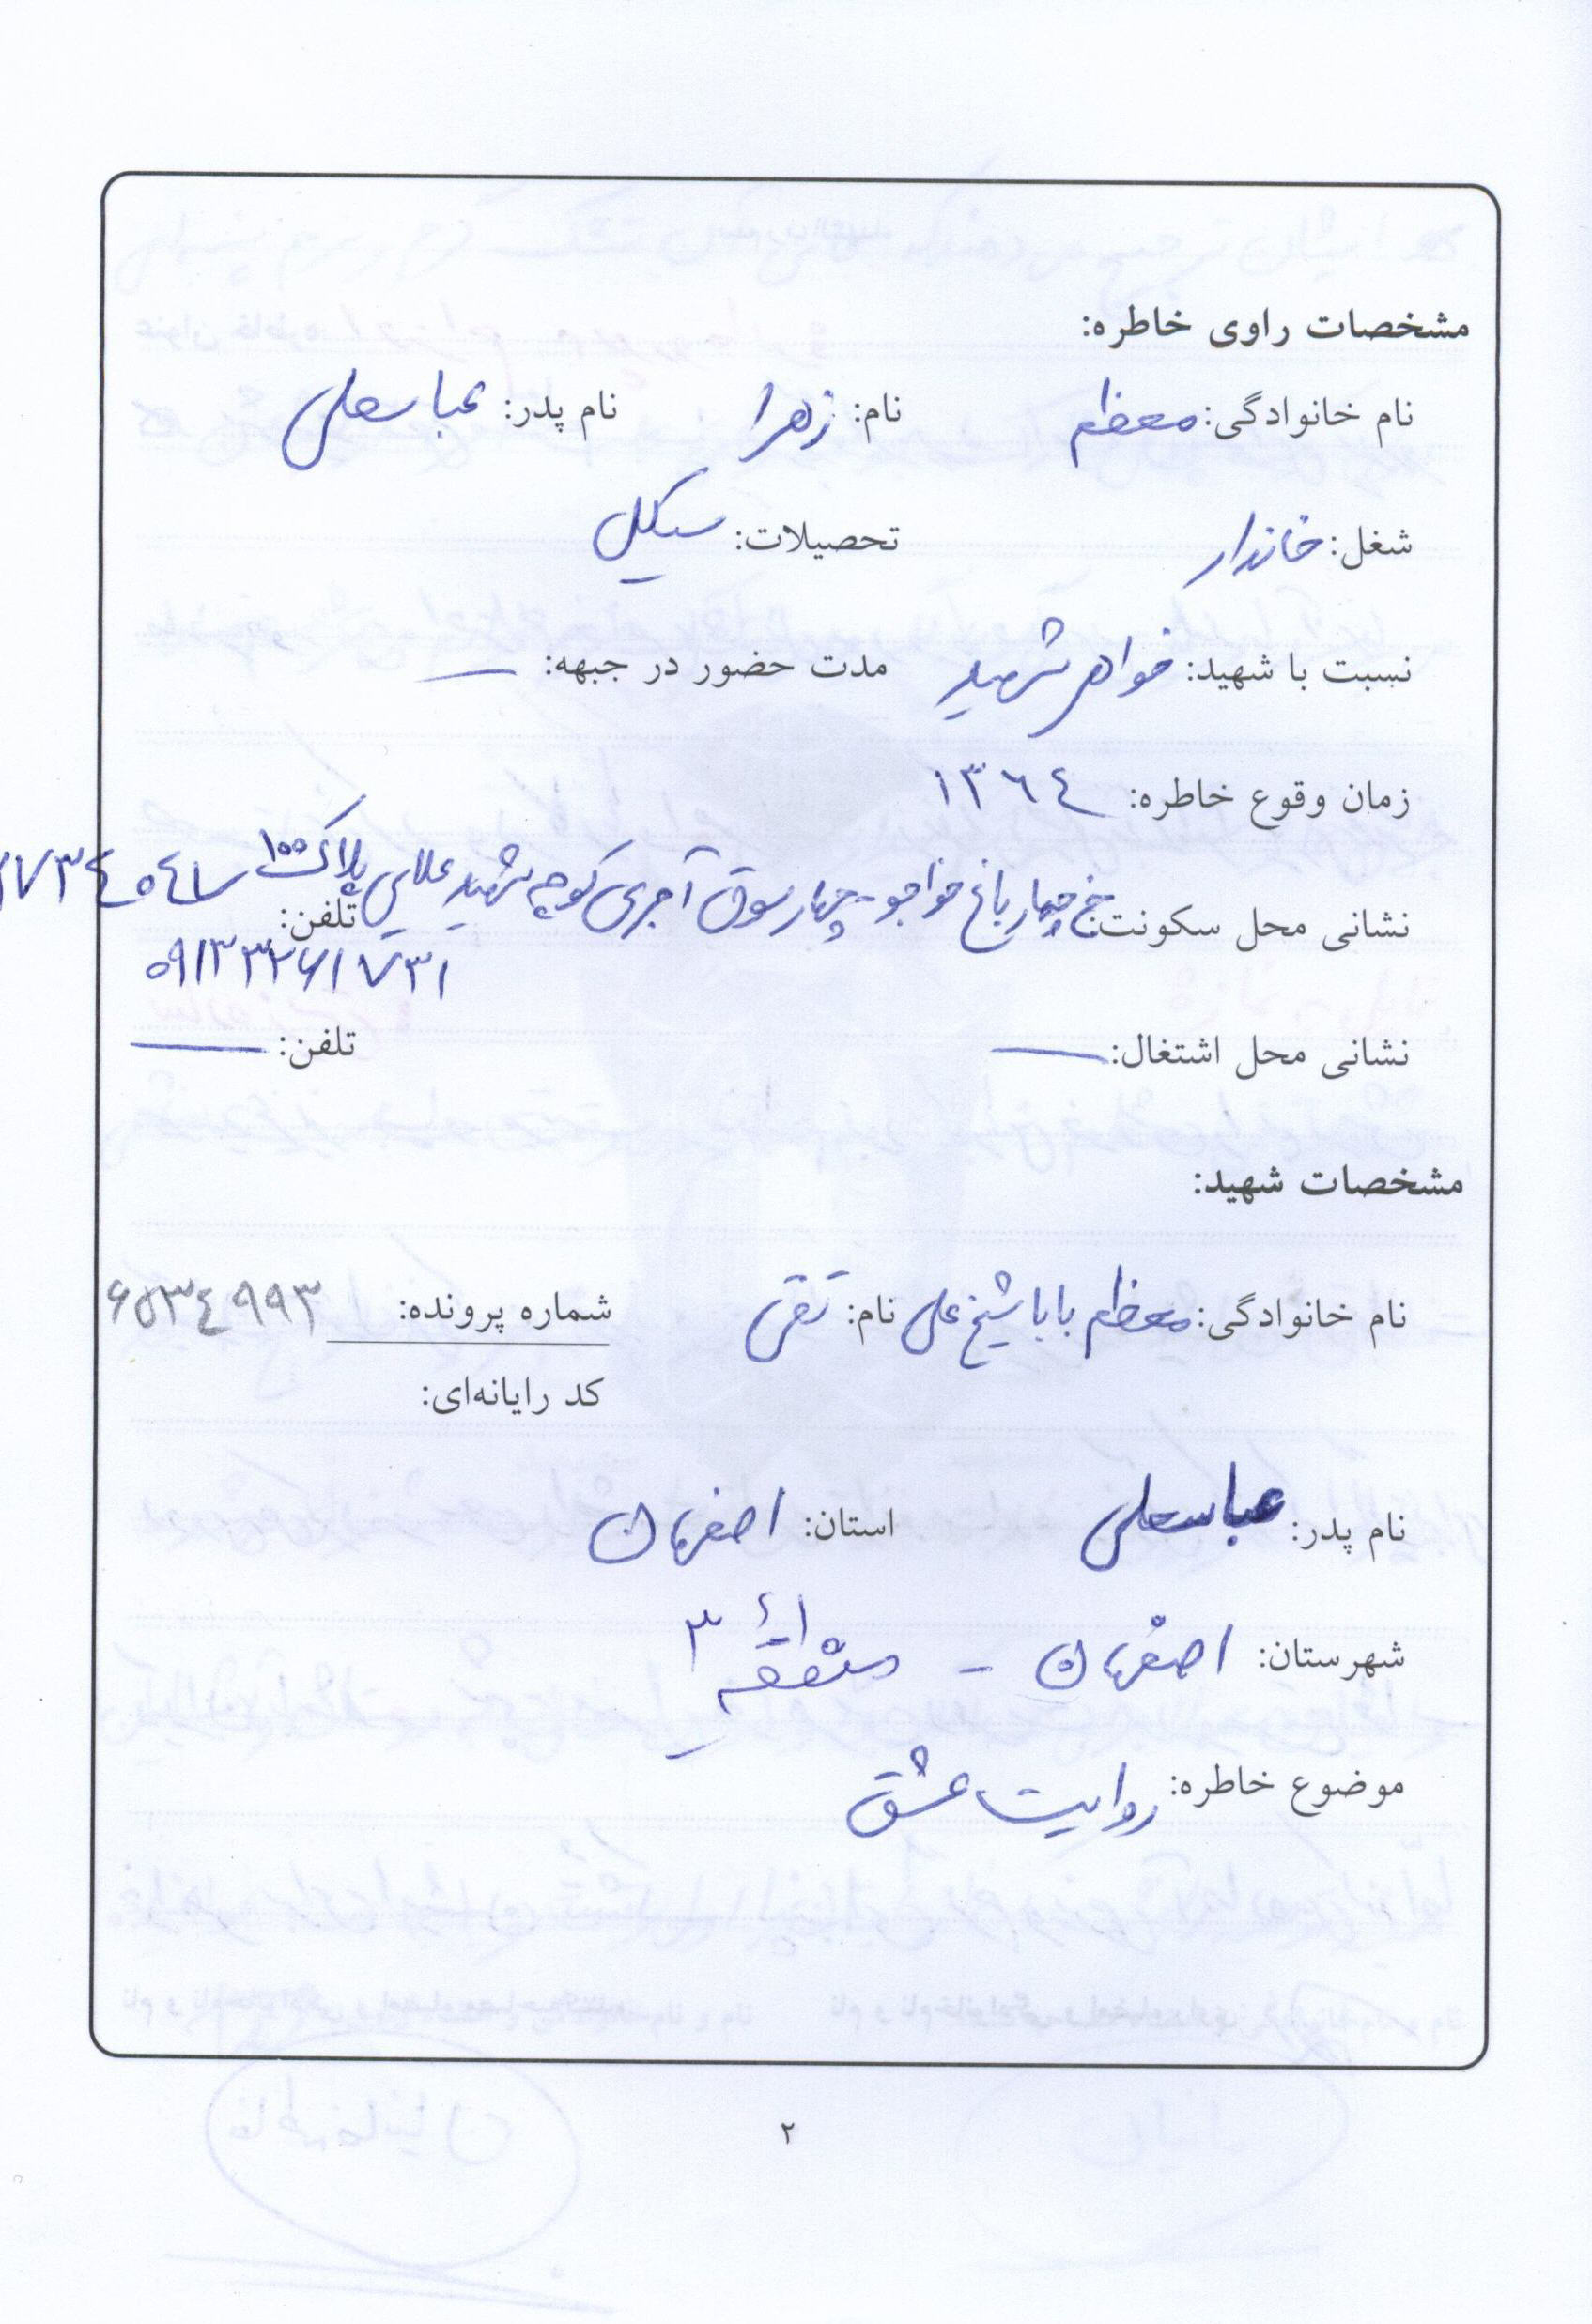 مشخصات راوی خاطره:
نام خانوادگی: معظم نام: زهرا نام پدر: عباسعلی
شغل: خاندار تحصیلات: سیکل
نسبت با شهید: خواهر شهید مدت حضور در جبهه: —
زمان وقوع خاطره: ۱۳۶۴
نشانی محل سکونت: خ چهارباغ خواجو - چهارسوق آجری کوچه شهید علایی پلاک ۱۰۰ تلفن:
۰۹۱۳۳۲۶۱۷۳۱
نشانی محل اشتغال: — تلفن: —
مشخصات شهید:
نام خانوادگی: معظم باباشیخ علی نام: تقی شماره پرونده: ۶۵۳۴۹۹۳
کد رایانه‌ای:
نام پدر: عباسعلی استان: اصفهان
شهرستان: اصفهان - منطقه ۳
موضوع خاطره: روایت عشق
۲